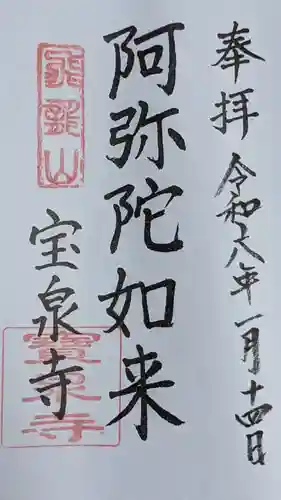 奉拝 令和六年一月十四日
阿弥陀如来
飛龍山
宝泉寺
寶泉寺